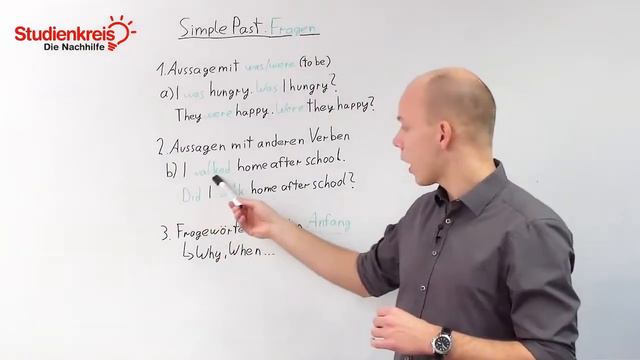 Studienkreis
Die Nachhilfe
Simple Past. Fragen
1. Aussage mit was/were (to be)
a) I was hungry. Was I hungry?
They were happy. Were they happy?
2. Aussagen mit anderen Verben
b) I walked home after school.
Did I home after school?
3. Anfang
↳ Why, When...